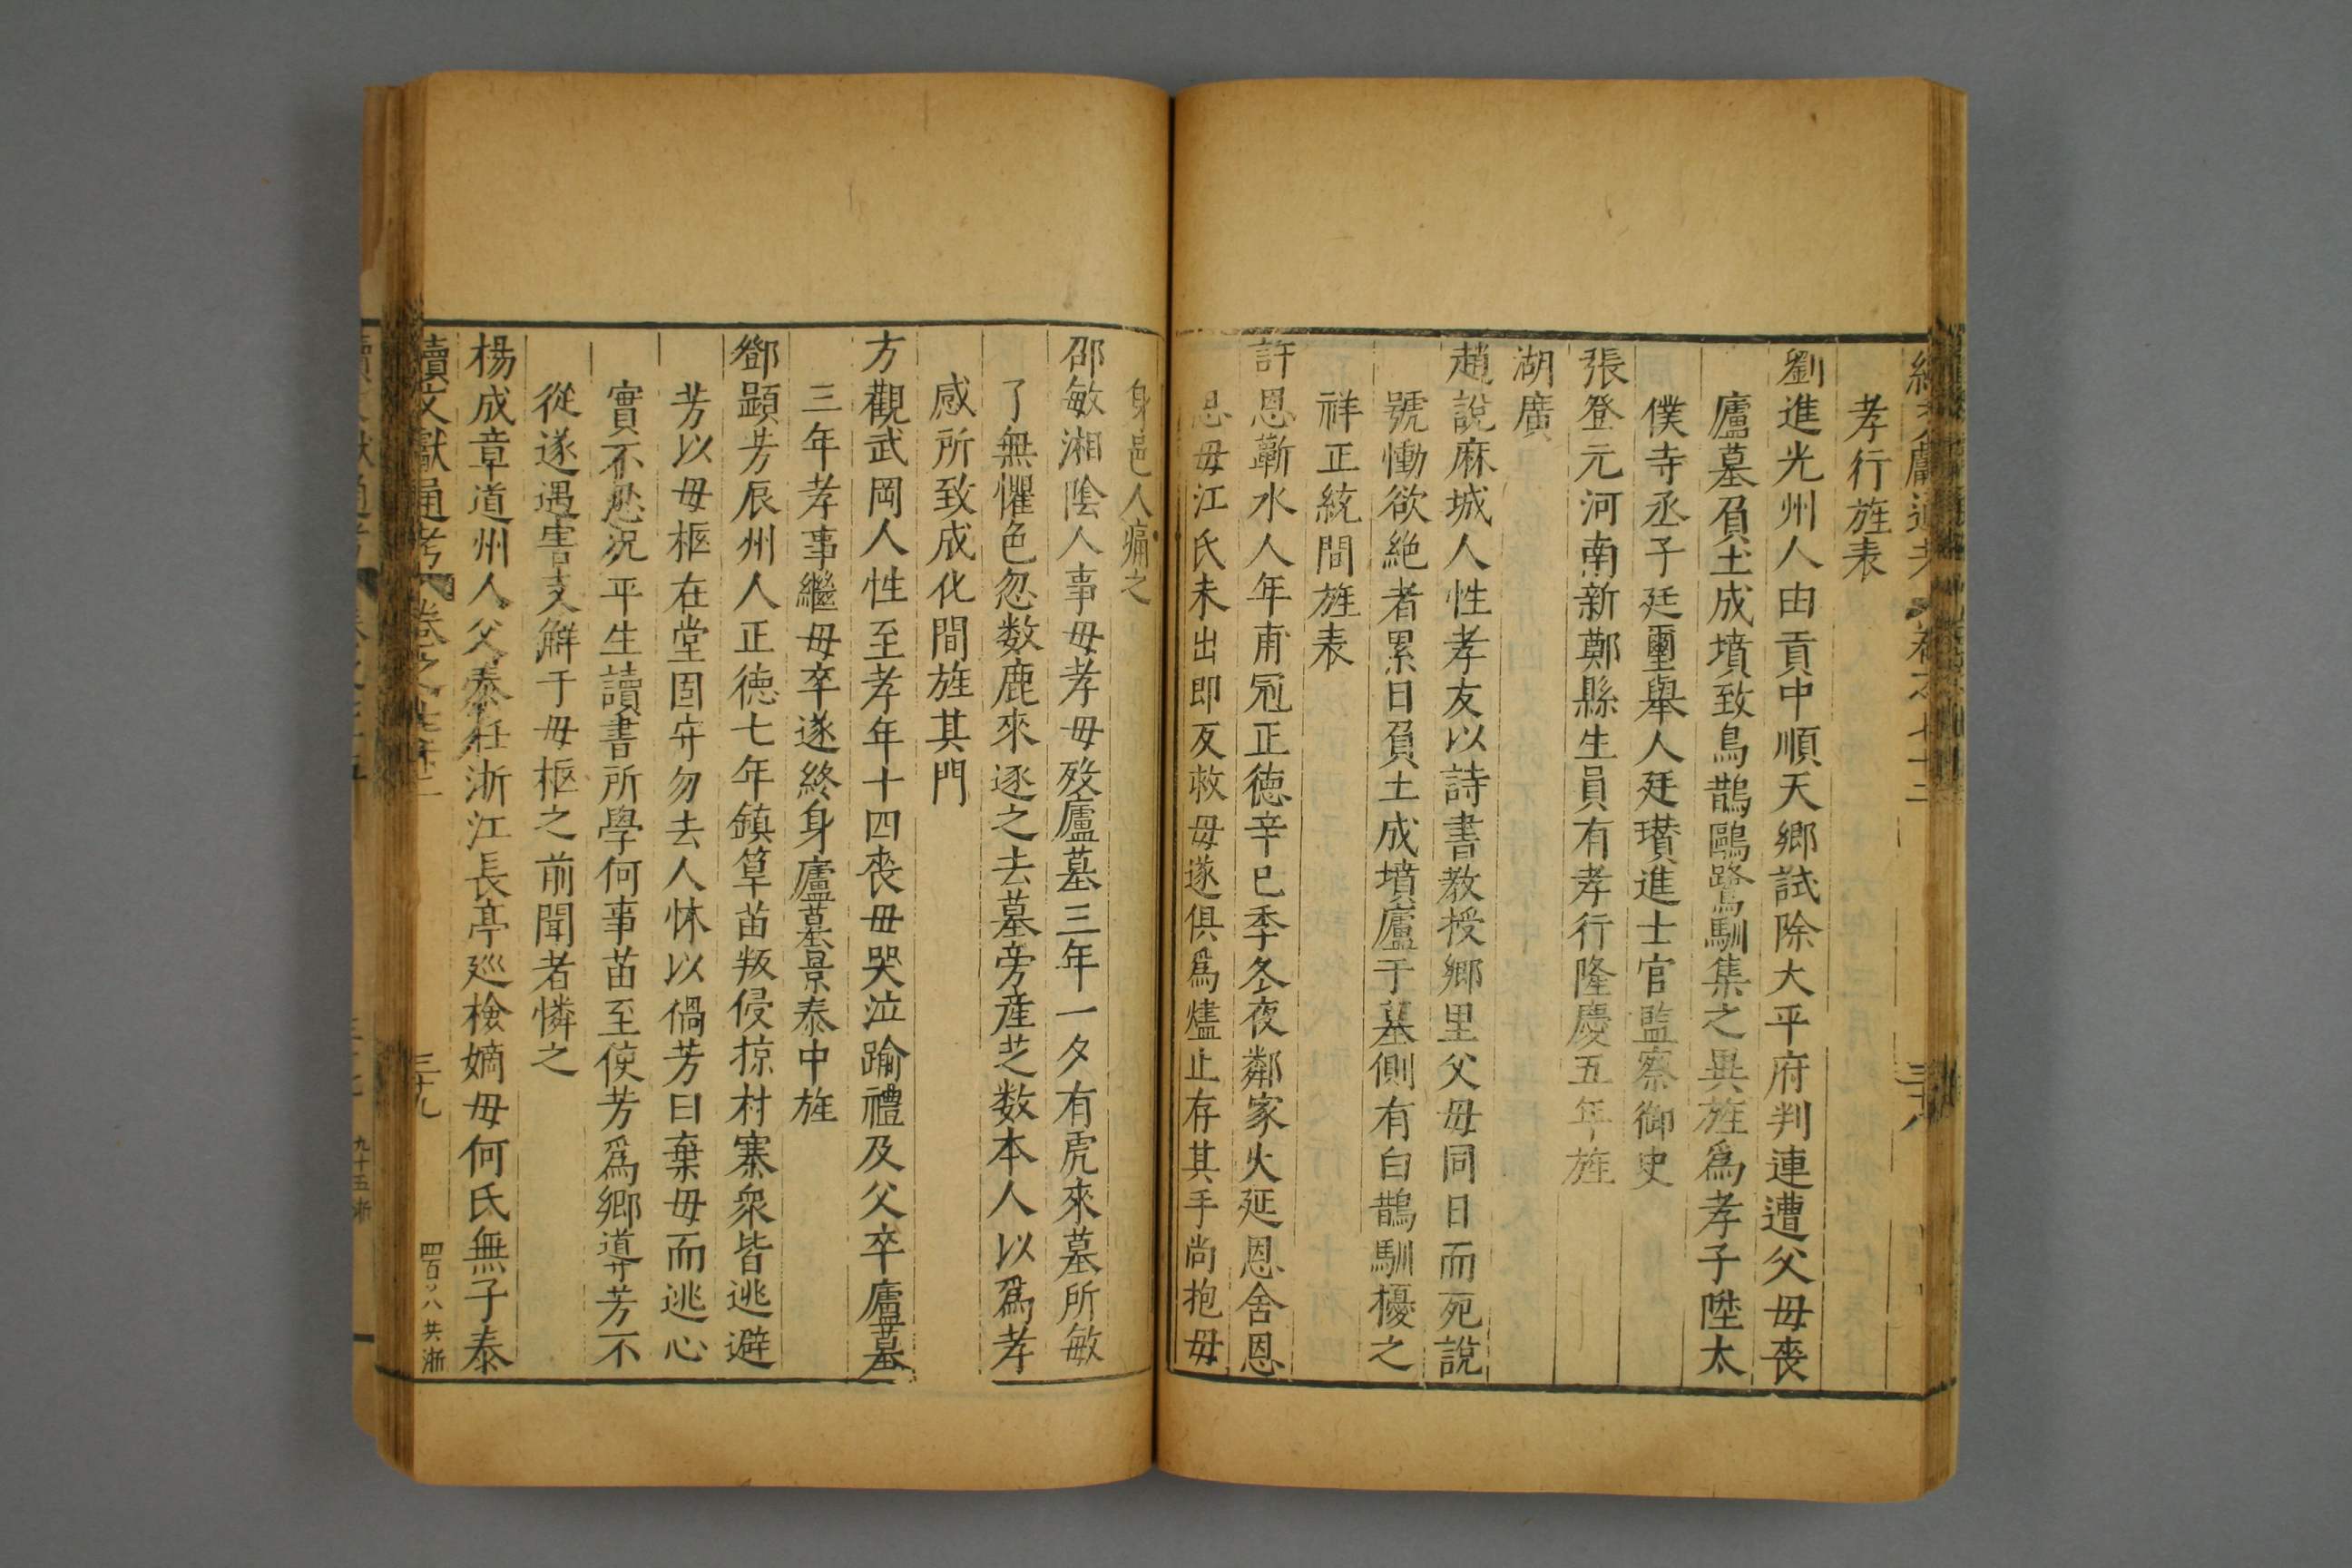 續文獻通考 卷之七十三 三十八
孝行旌表
劉進光州人由貢中順天鄉試除大平府判連遭父母喪
廬墓負土成墳致烏鵲鷗鷺馴集之異旌爲孝子陞太
僕寺丞子廷璽舉人廷瓚進士官監察御史
張登元河南新鄭縣生員有孝行隆慶五年旌
湖廣
趙說麻城人性孝友以詩書教授鄉里父母同日而死說
號慟欲絶者累日負土成墳廬于墓側有白鵲馴擾之
祥正統間旌表
許恩蘄水人年甫冠正德辛巳季冬夜鄰家火延恩舍恩
忌母江氏未出即反救母遂俱爲燼止存其手尚抱母
身邑人痛之
邵敏湘陰人事母孝母歿廬墓三年一夕有虎來墓所敏
了無懼色忽数鹿來逐之去墓旁産芝数本人以爲孝
感所致成化間旌其門
方觀武岡人性至孝年十四喪母哭泣踰禮及父卒廬墓
三年孝事繼母卒遂終身廬墓景泰中旌
鄧顯芳辰州人正德七年鎮筸苗叛侵掠村寨衆皆逃避
芳以母柩在堂固守勿去人怵以禍芳曰棄母而逃心
實不忍况平生讀書所學何事苗至使芳爲鄉導芳不
從遂遇害支觧于母柩之前聞者憐之
楊成章道州人父泰任浙江長亭廵檢嫡母何氏無子泰
續文獻通考 卷之七十三 三十九 四百〇八 共浙
九十五 浙